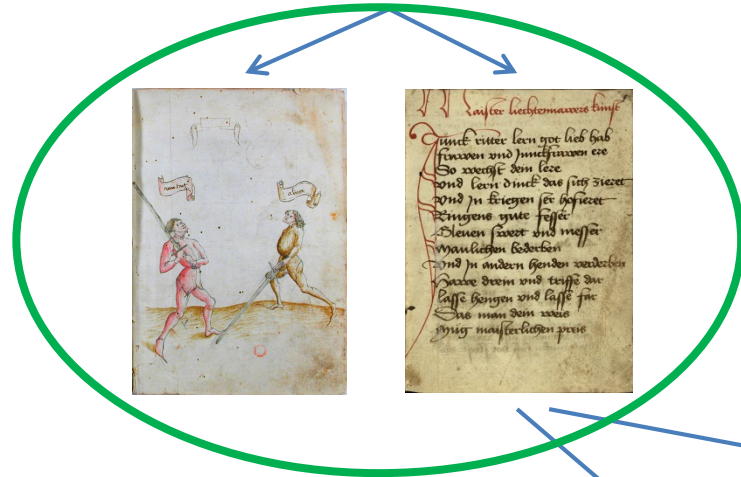 aber
Maister liechtenawers kunst
Junck ritter lern got lieb hab
frawen vnd Junckfrawen ere
So wechst dein lere
vnd lern dinck das sich zieret
vnd In kriegen ser hofieret
Ringens gute fesser
Gleuen swert vnd messer
Manlichen bederben
vnd In andern henden verderben
Hawe drein vnd triffe dar
lasse hengen vnd lasse far
Das man dein weis
Mug maisterlichen preis